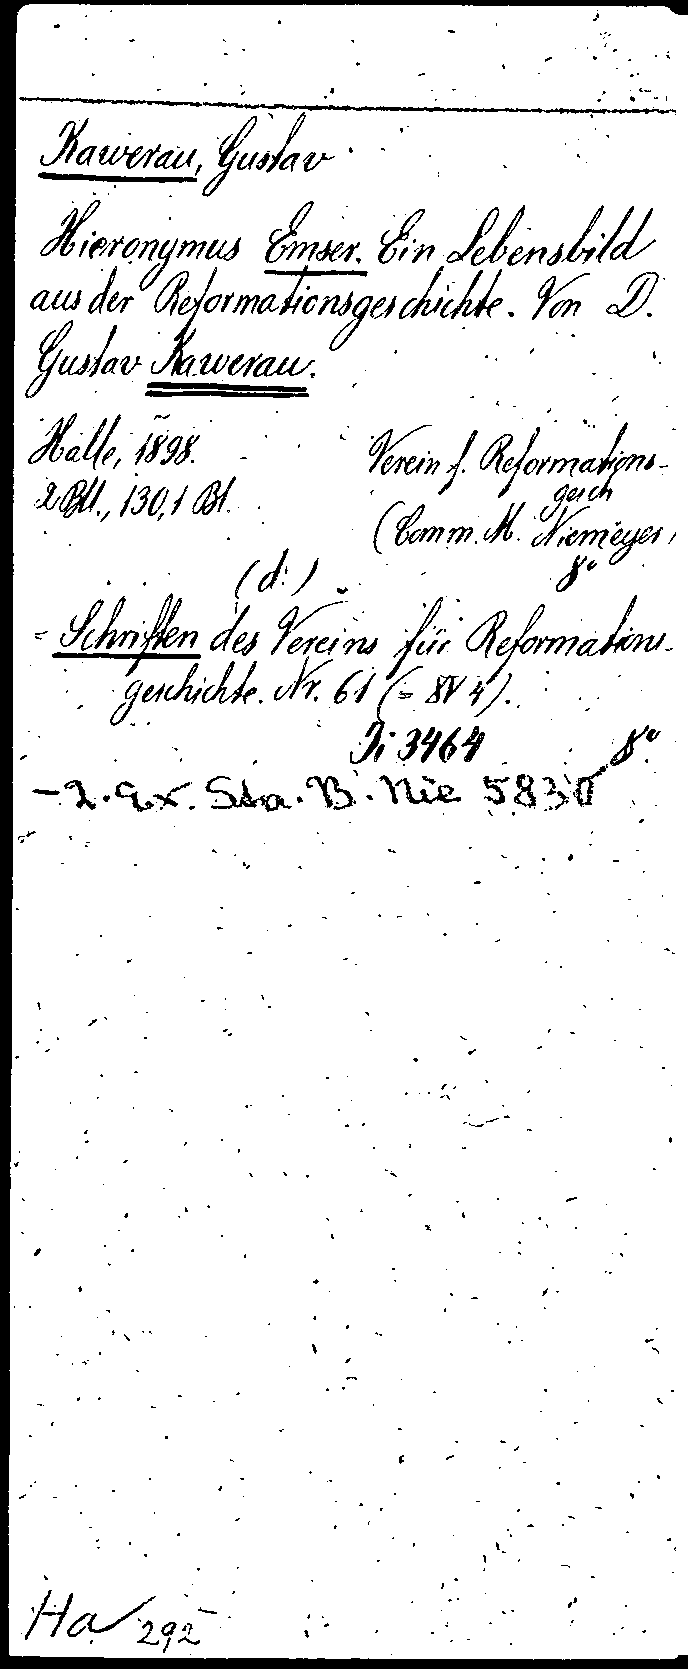 Kawerau, Gustav
Hieronymus Emser. Ein Lebensbild
aus der Reformationsgeschichte. Von D.
Gustav Kawerau.
Halle, 1898.
Verein f. Reformations-
gesch
2 Bll., 130, 1 Bl.
(Comm. M. Niemeyer)
8°
(d:)
= Schriften des Vereins für Reformations-
geschichte. Nr. 61 (= XV 4).
Ji 3464 8°
- 2. Ex. Sta. B. Nie 5830
Ha 292